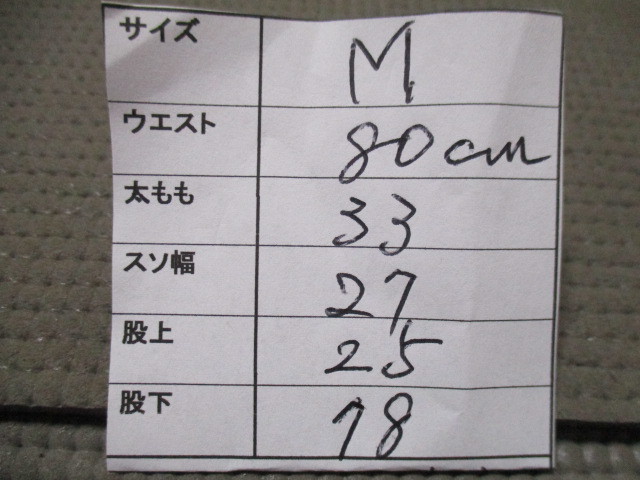 サイズ M
ウエスト 80cm
太もも 33
スソ幅 27
股上 25
股下 18